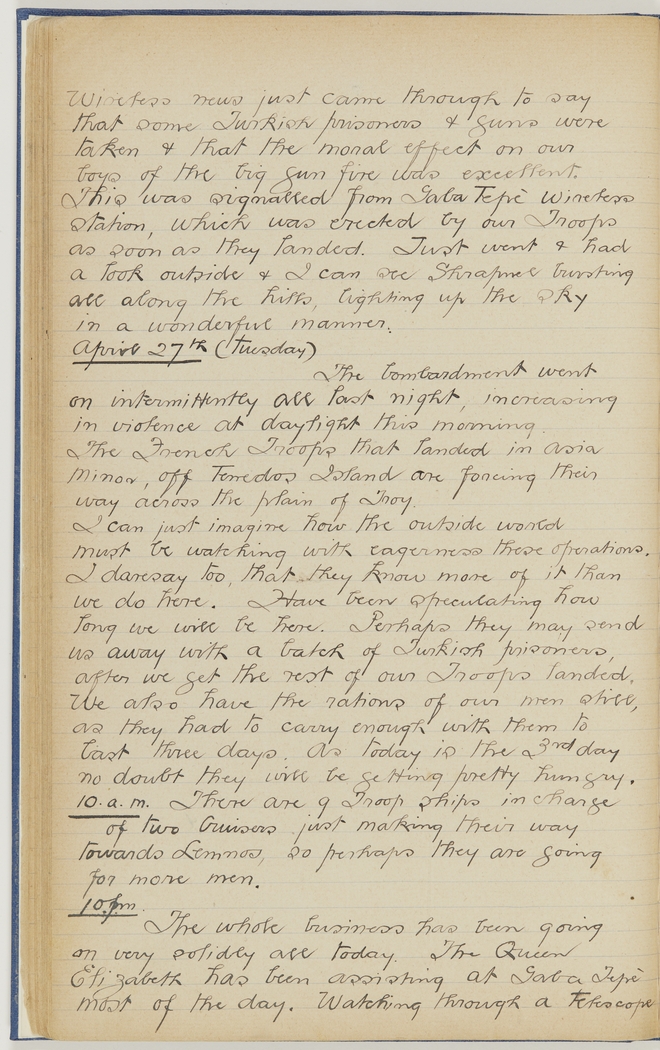 Wireless news just came through to say
that some Turkish prisoners & guns were
taken & that the moral effect on our
boys of the big gun fire was excellent.
This was signalled from Gaba Tepè Wireless
station, which was erected by our Troops
as soon as they landed. Just went & had
a look outside & I can see Shrapnel bursting
all along the hills, lighting up the sky
in a wonderful manner.
April 27th (Tuesday)
The bombardment went
on intermittently all last night, increasing
in violence at daylight this morning.
The French Troops that landed in Asia
Minor, off Tenedos Island are forcing their
way across the plain of Troy.
I can just imagine how the outside world
must be watching with eagerness these operations.
I daresay too, that they know more of it than
we do here. Have been speculating how
long we will be here. Perhaps they may send
us away with a batch of Turkish prisoners,
after we get the rest of our Troops landed.
We also have the rations of our men still,
as they had to carry enough with them to
last three days. As today is the 3rd day
no doubt they will be getting pretty hungry.
10. a. m. There are 9 Troop ships in charge
of two Cruisers just making their way
towards Lemnos, so perhaps they are going
for more men.
10.pm.
The whole business has been going
on very solidly all today. The Queen
Elizabeth has been assisting at Gaba Tepè
most of the day. Watching through a telescope